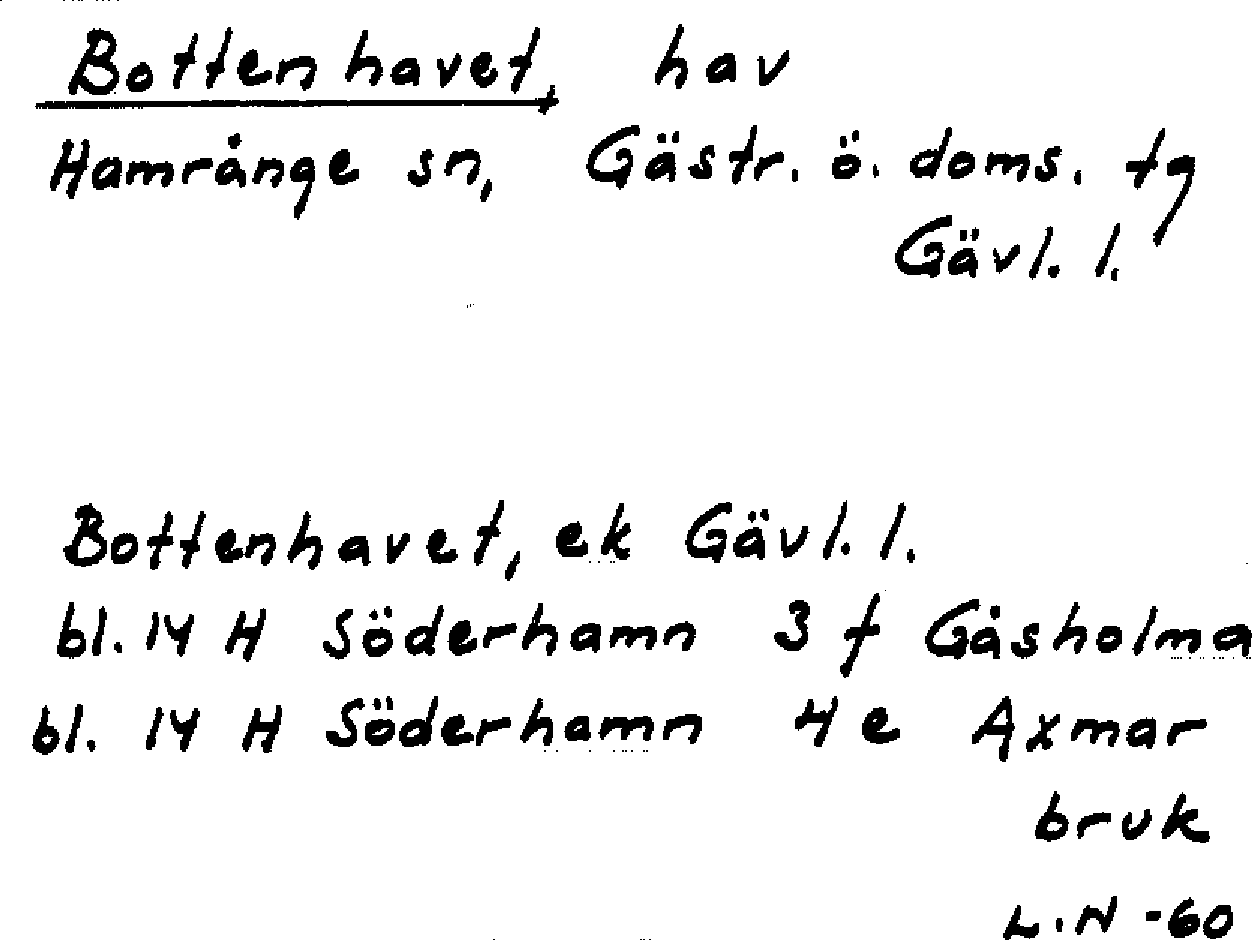 Bottenhavet, hav
Hamrånge sn, Gästr. ö. doms. tg
Gävl. l.
Bottenhavet, ek Gävl. l.
bl. 14 H Söderhamn 3 f Gåsholma
bl. 14 H Söderhamn 4 e Axmar
bruk
L.N -60